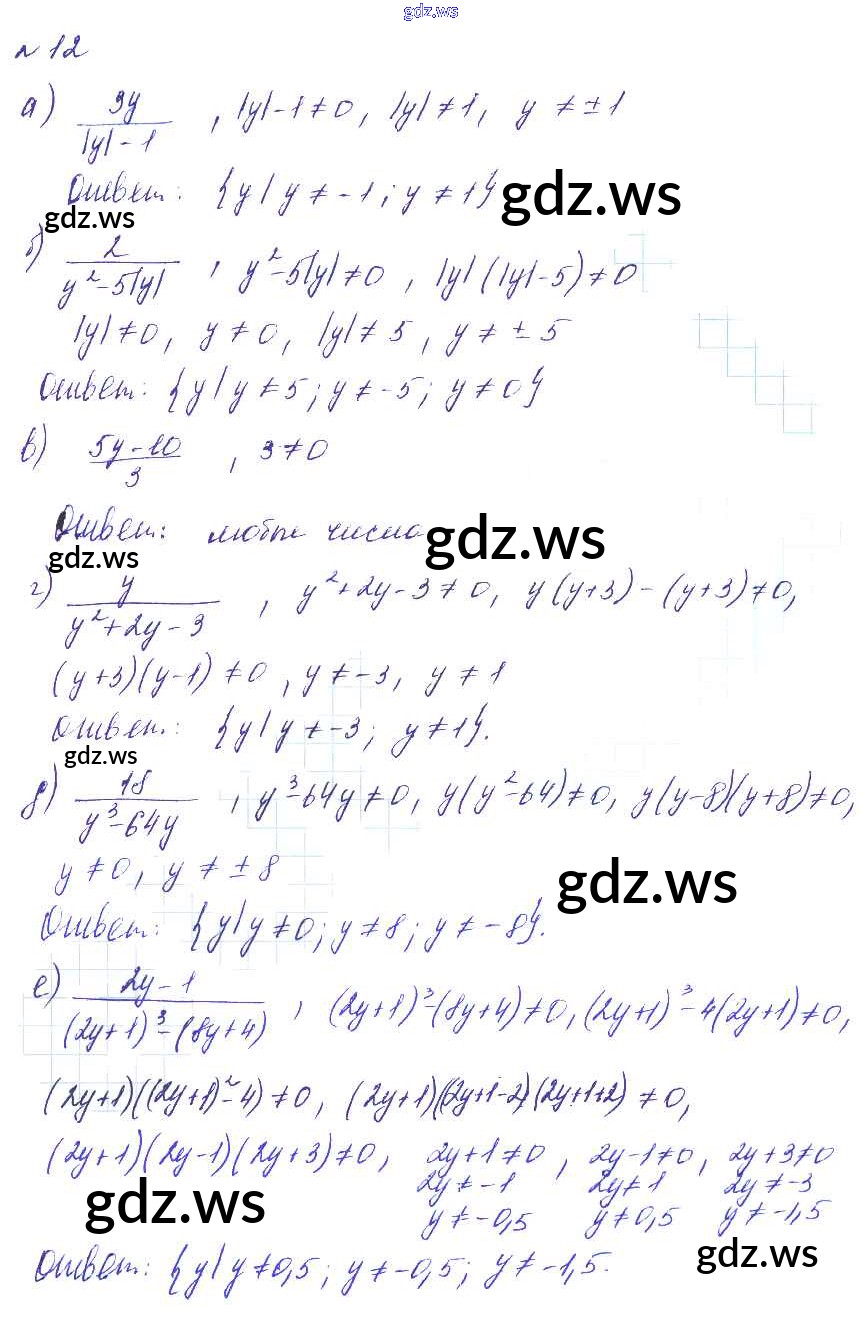 gdz.ws
№ 12
а) 9y / (|y| - 1) , |y| - 1 ≠ 0, |y| ≠ 1, y ≠ ±1
Ответ: {y | y ≠ -1; y ≠ 1} gdz.ws
gdz.ws
б) 2 / (y² - 5|y|) , y² - 5|y| ≠ 0, |y|(|y| - 5) ≠ 0
|y| ≠ 0, y ≠ 0, |y| ≠ 5, y ≠ ± 5
Ответ: {y | y ≠ 5; y ≠ -5; y ≠ 0}
в) (5y - 10) / 3 , 3 ≠ 0
Ответ: любые числа gdz.ws
gdz.ws
г) y / (y² + 2y - 3) , y² + 2y - 3 ≠ 0, y(y+3) - (y+3) ≠ 0,
(y+3)(y-1) ≠ 0, y ≠ -3, y ≠ 1
Ответ: {y | y ≠ -3; y ≠ 1}.
gdz.ws
д) 18 / (y³ - 64y) , y³ - 64y ≠ 0, y(y² - 64) ≠ 0, y(y-8)(y+8) ≠ 0,
y ≠ 0, y ≠ ± 8 gdz.ws
Ответ: {y | y ≠ 0; y ≠ 8; y ≠ -8}.
е) (2y - 1) / ((2y+1)³ - (8y+4)) , (2y+1)³ - (8y+4) ≠ 0, (2y+1)³ - 4(2y+1) ≠ 0,
(2y+1)((2y+1)² - 4) ≠ 0, (2y+1)(2y+1-2)(2y+1+2) ≠ 0,
(2y+1)(2y-1)(2y+3) ≠ 0, 2y+1 ≠ 0, 2y-1 ≠ 0, 2y+3 ≠ 0
2y ≠ -1 2y ≠ 1 2y ≠ -3
gdz.ws y ≠ -0,5 y ≠ 0,5 y ≠ -1,5
gdz.ws
Ответ: {y | y ≠ 0,5; y ≠ -0,5; y ≠ -1,5.